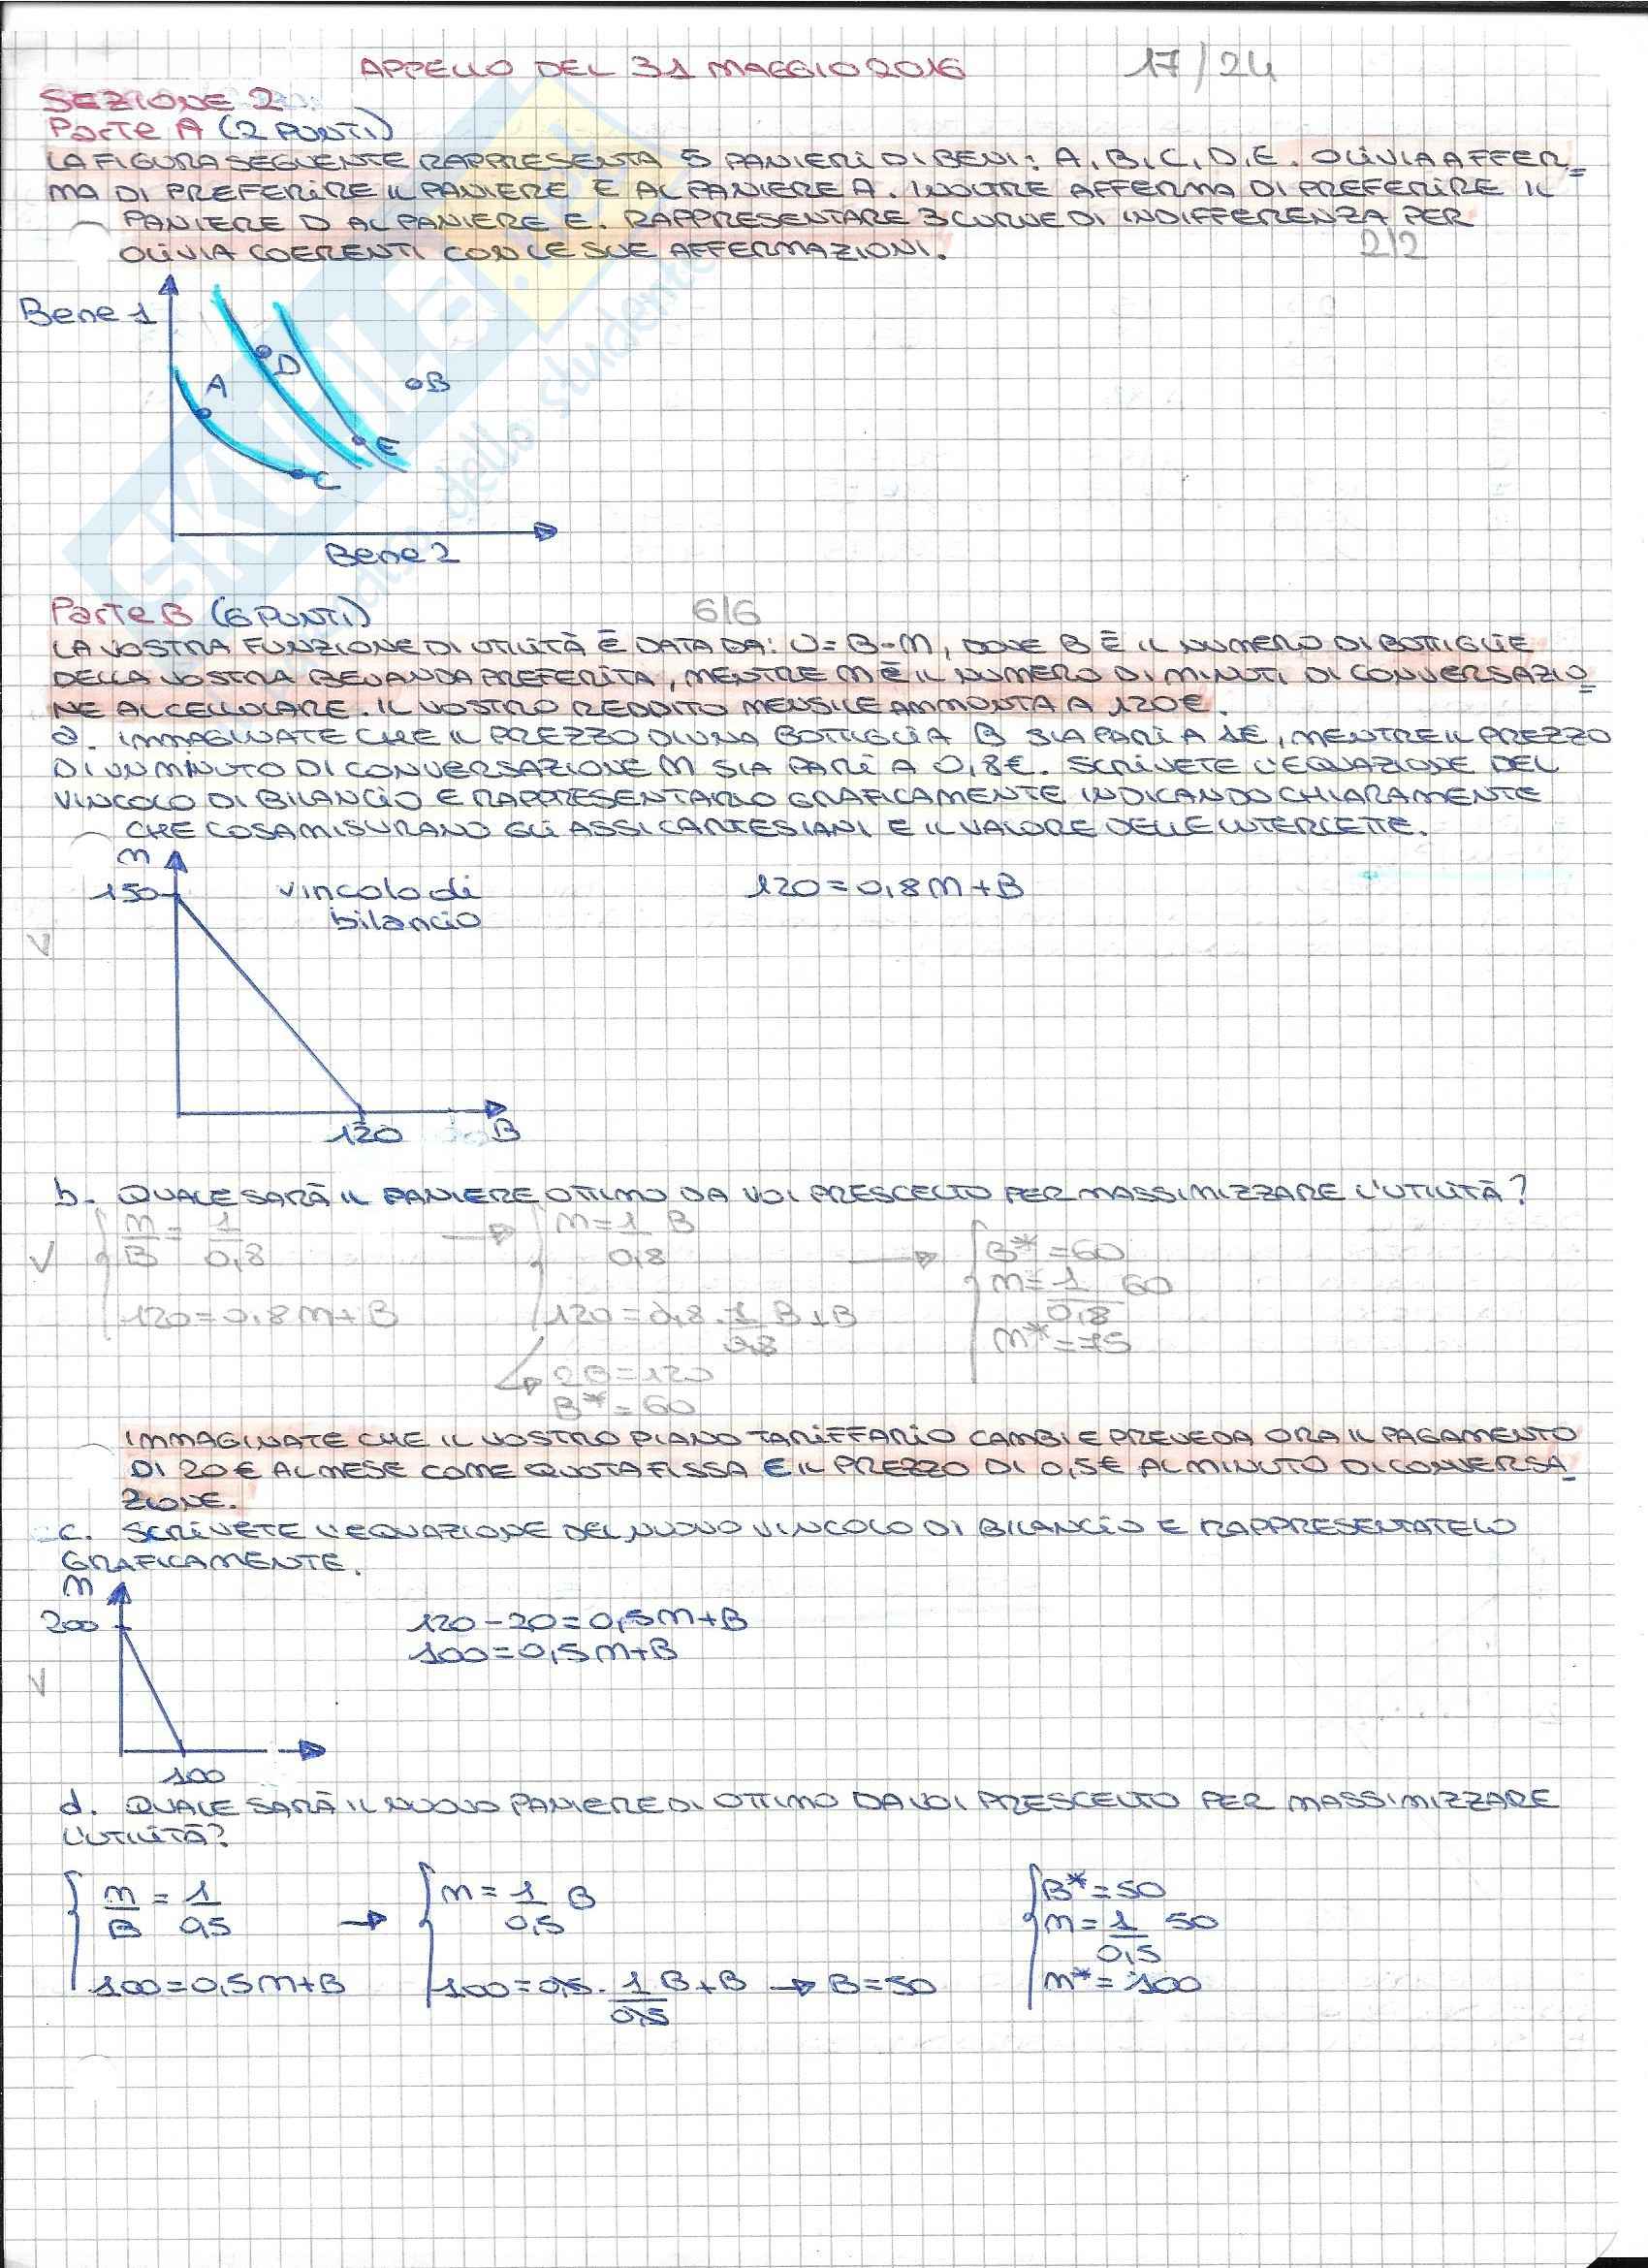 APPELLO DEL 31 MAGGIO 2016 17/24
SEZIONE 2
Parte A (2 PUNTI)
LA FIGURA SEGUENTE RAPPRESENTA 5 PANIERI DI BENI: A, B, C, D, E. OLIVIA AFFER=
MA DI PREFERIRE IL PANIERE E AL PANIERE A. INOLTRE AFFERMA DI PREFERIRE IL
PANIERE D AL PANIERE E. RAPPRESENTARE 3 CURVE DI INDIFFERENZA PER
OLIVIA COERENTI CON LE SUE AFFERMAZIONI. 2/2
Bene 1
D
A
B
E
C
Bene 2
Parte B (6 PUNTI) 6/6
LA VOSTRA FUNZIONE DI UTILITÀ È DATA DA: U=B·M, DOVE B È IL NUMERO DI BOTTIGLIE
DELLA VOSTRA BEVANDA PREFERITA, MENTRE M È IL NUMERO DI MINUTI DI CONVERSAZIO=
NE AL CELLULARE. IL VOSTRO REDDITO MENSILE AMMONTA A 120€.
a. IMMAGINATE CHE IL PREZZO DI UNA BOTTIGLIA B SIA PARI A 1€, MENTRE IL PREZZO
DI UN MINUTO DI CONVERSAZIONE M SIA PARI A 0,8€. SCRIVETE L'EQUAZIONE DEL
VINCOLO DI BILANCIO E RAPPRESENTARLO GRAFICAMENTE INDICANDO CHIARAMENTE
CHE COSA MISURANO GLI ASSI CARTESIANI E IL VALORE DELLE INTERCETTE.
M
150 vincolo di 120=0,8M+B
bilancio
V
120 B
b. QUALE SARÀ IL PANIERE OTTIMO DA VOI PRESCELTO PER MASSIMIZZARE L'UTILITÀ?
M/B = 1/0,8 → M=1/0,8 B → B*=60
V
M=1/0,8 60
120=0,8M+B 120=0,8·1/0,8 B+B M*=75
2B=120
B*=60
IMMAGINATE CHE IL VOSTRO PIANO TARIFFARIO CAMBI E PREVEDA ORA IL PAGAMENTO
DI 20€ AL MESE COME QUOTA FISSA E IL PREZZO DI 0,5€ AL MINUTO DI CONVERSA=
ZIONE.
c. SCRIVETE L'EQUAZIONE DEL NUOVO VINCOLO DI BILANCIO E RAPPRESENTATELO
GRAFICAMENTE.
M
200 120-20=0,5M+B
100=0,5M+B
V
100
d. QUALE SARÀ IL NUOVO PANIERE DI OTTIMO DA VOI PRESCELTO PER MASSIMIZZARE
L'UTILITÀ?
M/B = 1/0,5 → M=1/0,5 B B*=50
M=1/0,5 50
100=0,5M+B 100=0,5·1/0,5 B+B → B=50 M*=100